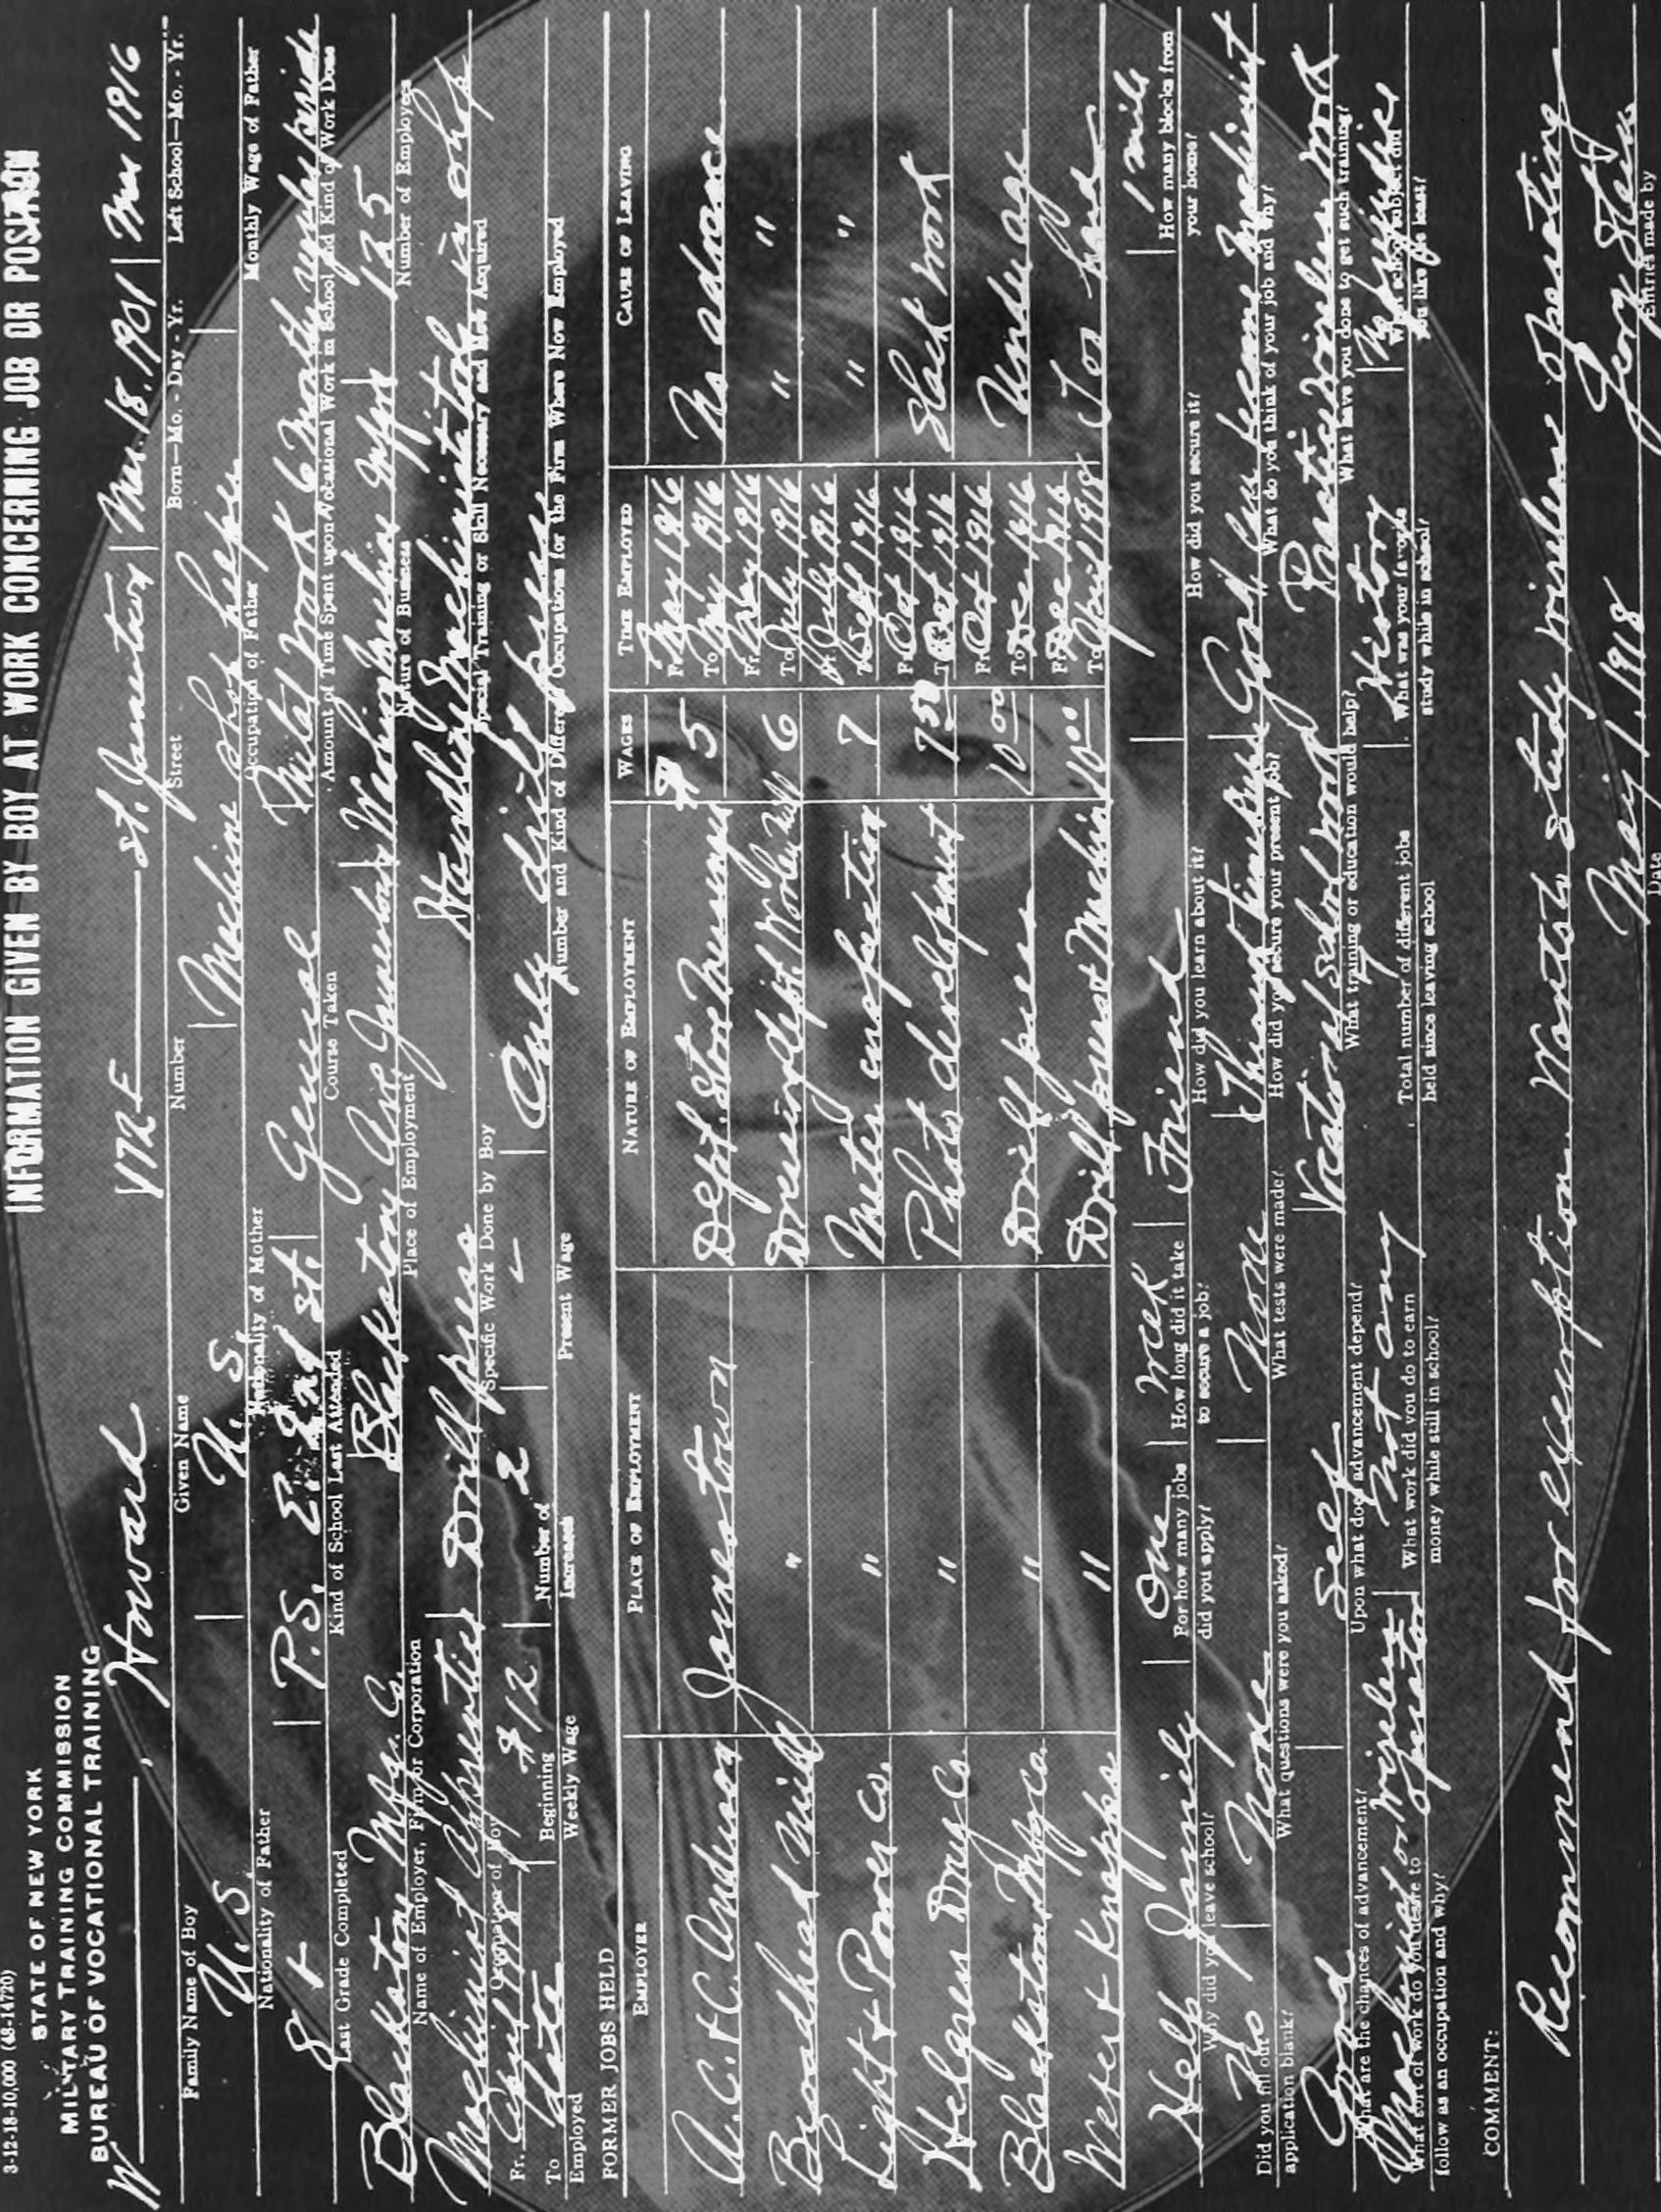 3-12-18-10,000 (63-14720)
STATE OF NEW YORK
MILITARY TRAINING COMMISSION
BUREAU OF VOCATIONAL TRAINING
INFORMATION GIVEN BY BOY AT WORK CONCERNING JOB OR POSITION
W , Howard 172 E St. Jamestown Mar. 18. 1901 Mar 1916
Family Name of Boy Given Name Number Street Born—Mo. - Day - Yr. Left School—Mo. - Yr.
U. S. U. S. Machine shop helper
Nationality of Father Nationality of Mother Occupation of Father Monthly Wage of Father
8th P.S. E. 2nd St. General Metal work 6 months
Last Grade Completed Kind of School Last Attended Course Taken Amount of Time Spent upon Vocational Work in School and Kind of Work Done
Blackston Mfg. Co. Blackston Ave. Jamestown Washing Machine Mfgs 125
Name of Employer, Firm or Corporation Place of Employment Nature of Business Number of Employees
Machinist Apprentice Drill press Handling Machinists tools in shop
Occupation of Boy Specific Work Done by Boy Special Training or Skill Necessary and How Acquired
Fr. April 1918 $12 2 - Only drill press
To date
Employed Beginning Weekly Wage Number of Increases Present Wage Number and Kind of Different Occupations for the Firm Where Now Employed
FORMER JOBS HELD
EMPLOYER PLACE OF EMPLOYMENT NATURE OF EMPLOYMENT WAGES TIME EMPLOYED CAUSE OF LEAVING
A. C. & C. Anderson Jamestown Dept. Store Messenger $5 Fr. May 1916 To May 1916 No advance
Broadhead Mills " Dressing dept. Woolen Mill 6 Fr. May 1916 To July 1916 " "
Light & Power Co. " Meter inspection 7 Fr. July 1916 To Sept 1916 " "
Helgren Drug Co " Photo development 7 50 Fr. Oct 1916 To Oct 1916 Slack work
Blackston Mfg Co. " Drill press 10 00 Fr. Oct 1916 To Dec 1916 Under age
Weber & Knapps " Drill press & Machine 10 00 Fr. Dec 1916 To April 1918 Too hard
Help family One week Friend 1 mile
Why did you leave school? For how many jobs did you apply? How long did it take to secure a job? How did you learn about it? How did you secure it? How many blocks from your home?
No None None Through friend Good, can become Machinist
Did you fill out application blank? What questions were you asked? What tests were made? How did you secure your present job? What do you think of your job and why?
Good Self Vocational school work Practice wireless work
What are the chances of advancement? Upon what does advancement depend? What training or education would help? What have you done to get such training?
Machinist or Wireless operator Not any History No prejudice
What sort of work do you desire to follow as an occupation and why? What work did you do to earn money while still in school? Total number of different jobs held since leaving school What was your favorite study while in school? What school subject did you like the least?
COMMENT:
Recommend for exemption. Wants to study wireless operating
May 1, 1918
Date Entries made by